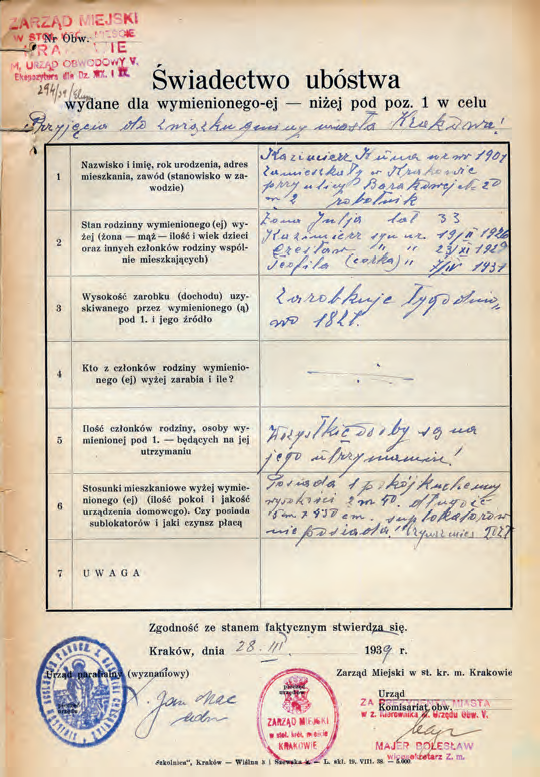 ZARZĄD MIEJSKI
W STOŁ. KRÓL. MIEŚCIE
KRAKOWIE
M. URZĄD OBWODOWY V.
Ekspozytura dla Dz. XX. i IX.
Nr Obw.
Świadectwo ubóstwa
wydane dla wymienionego-ej — niżej pod poz. 1 w celu
Przyjęcia do związku gminy miasta Krakowa!
1
Nazwisko i imię, rok urodzenia, adres
mieszkania, zawód (stanowisko w za-
wodzie)
Kazimierz Kuna ur w 1901
zamieszkały w Krakowie
przy ulicy Barakowej L 20
m 2 robotnik
2
Stan rodzinny wymienionego (ej) wy-
żej (żona — mąż — ilość i wiek dzieci
oraz innych członków rodziny wspól-
nie mieszkających)
żona Julja lat 33
Kazimierz syn ur. 1926
Czesław " " 23/XI 1929
Teofila (córka) " 7/IV 1931
3
Wysokość zarobku (dochodu) uzy-
skiwanego przez wymienionego (ą)
pod 1. i jego źródło
Zarobkuje tygodnio-
wo 18 zł.
4
Kto z członków rodziny wymienio-
nego (ej) wyżej zarabia i ile?
5
Ilość członków rodziny, osoby wy-
mienionej pod 1. — będących na jej
utrzymaniu
Wszystkie osoby są na
jego utrzymaniu!
6
Stosunki mieszkaniowe wyżej wymie-
nionego (ej) (ilość pokoi i jakość
urządzenia domowego). Czy posiada
sublokatorów i jaki czynsz płacą
Posiada 1 pokój kuchenny
wysokości 2 m 40. długość
5 m x 430 cm. suplokatorów
nie posiada!
7
UWAGA
Zgodność ze stanem faktycznym stwierdza się.
Kraków, dnia 28. III 1939 r.
Urząd parafialny (wyznaniowy)
Zarząd Miejski w st. kr. m. Krakowie
Urząd
Komisariat obw.
ZA PREZYDENTA MIASTA
w z. Kierownika M. Urzędu Obw. V.
MAJER BOLESŁAW
wicesekretarz Z. m.
pieczęć
urzędu
ZARZĄD MIEJSKI
w stoł. król. mieście
KRAKOWIE
„Szkolnica", Kraków — Wiślna 3 i Szewska — L. skł. 19. VIII. 38 — 5.000